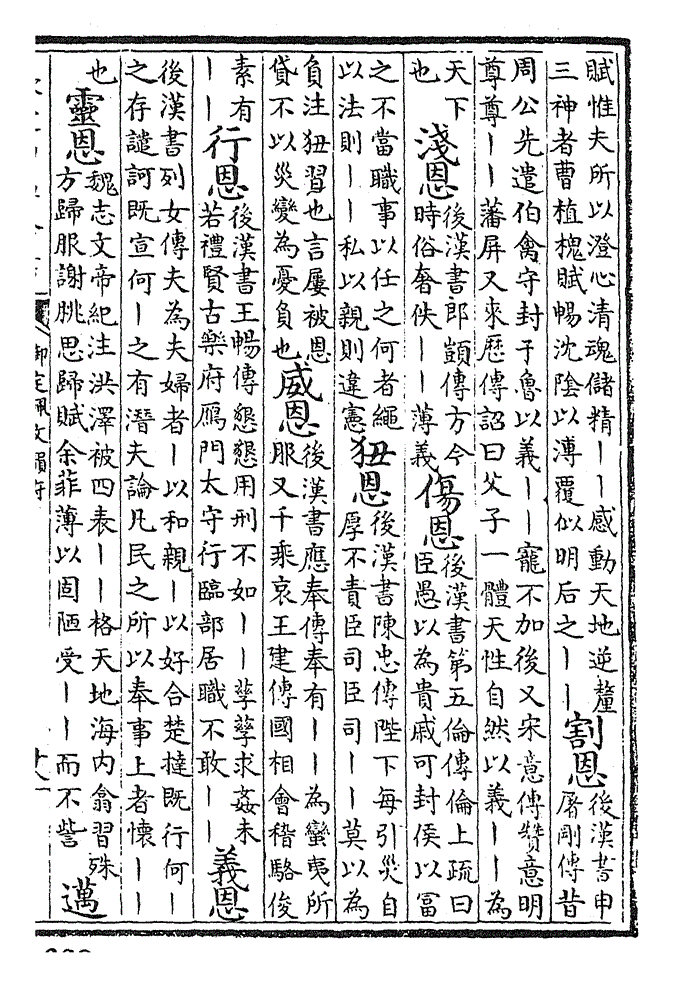 賦惟夫所以澄心清魂儲精｜｜感動天地逆釐
三神者曹植槐賦暢沈陰以溥覆似明后之｜｜
割恩
後漢書申
屠剛傳昔
周公先遣伯禽守封于魯以義｜｜寵不加後又宋意傳贊意明
尊尊｜｜蕃屏又來歷傳詔曰父子一體天性自然以義｜｜為
天下
也
淺恩
後漢書郎顗傳方今
時俗奢佚｜｜薄義
傷恩
後漢書第五倫傳倫上疏曰
臣愚以為貴戚可封侯以富
之不當職事以任之何者繩
以法則｜｜私以親則違憲
狃恩
後漢書陳忠傳陛下每引災自
厚不責臣司臣司｜｜莫以為
負注狃習也言屢被恩
貸不以災變為憂負也
威恩
後漢書應奉傳奉有｜｜為蠻夷所
服又千乘哀王建傳國相會稽駱俊
素有
｜｜
行恩
後漢書王暢傳懇懇用刑不如｜｜孳孳求姦未
若禮賢古樂府鴈門太守行臨部居職不敢｜｜
義恩
後漢書列女傳夫為夫婦者｜以和親｜以好合楚撻既行何｜
之存譴訶既宣何｜之有潛夫論凡民之所以奉事上者懷｜｜
也
靈恩
魏志文帝紀注洪澤被四表｜｜格天地海內翕習殊
方歸服謝朓思歸賦余菲薄以固陋受｜｜而不訾
邁
御定佩文韻府